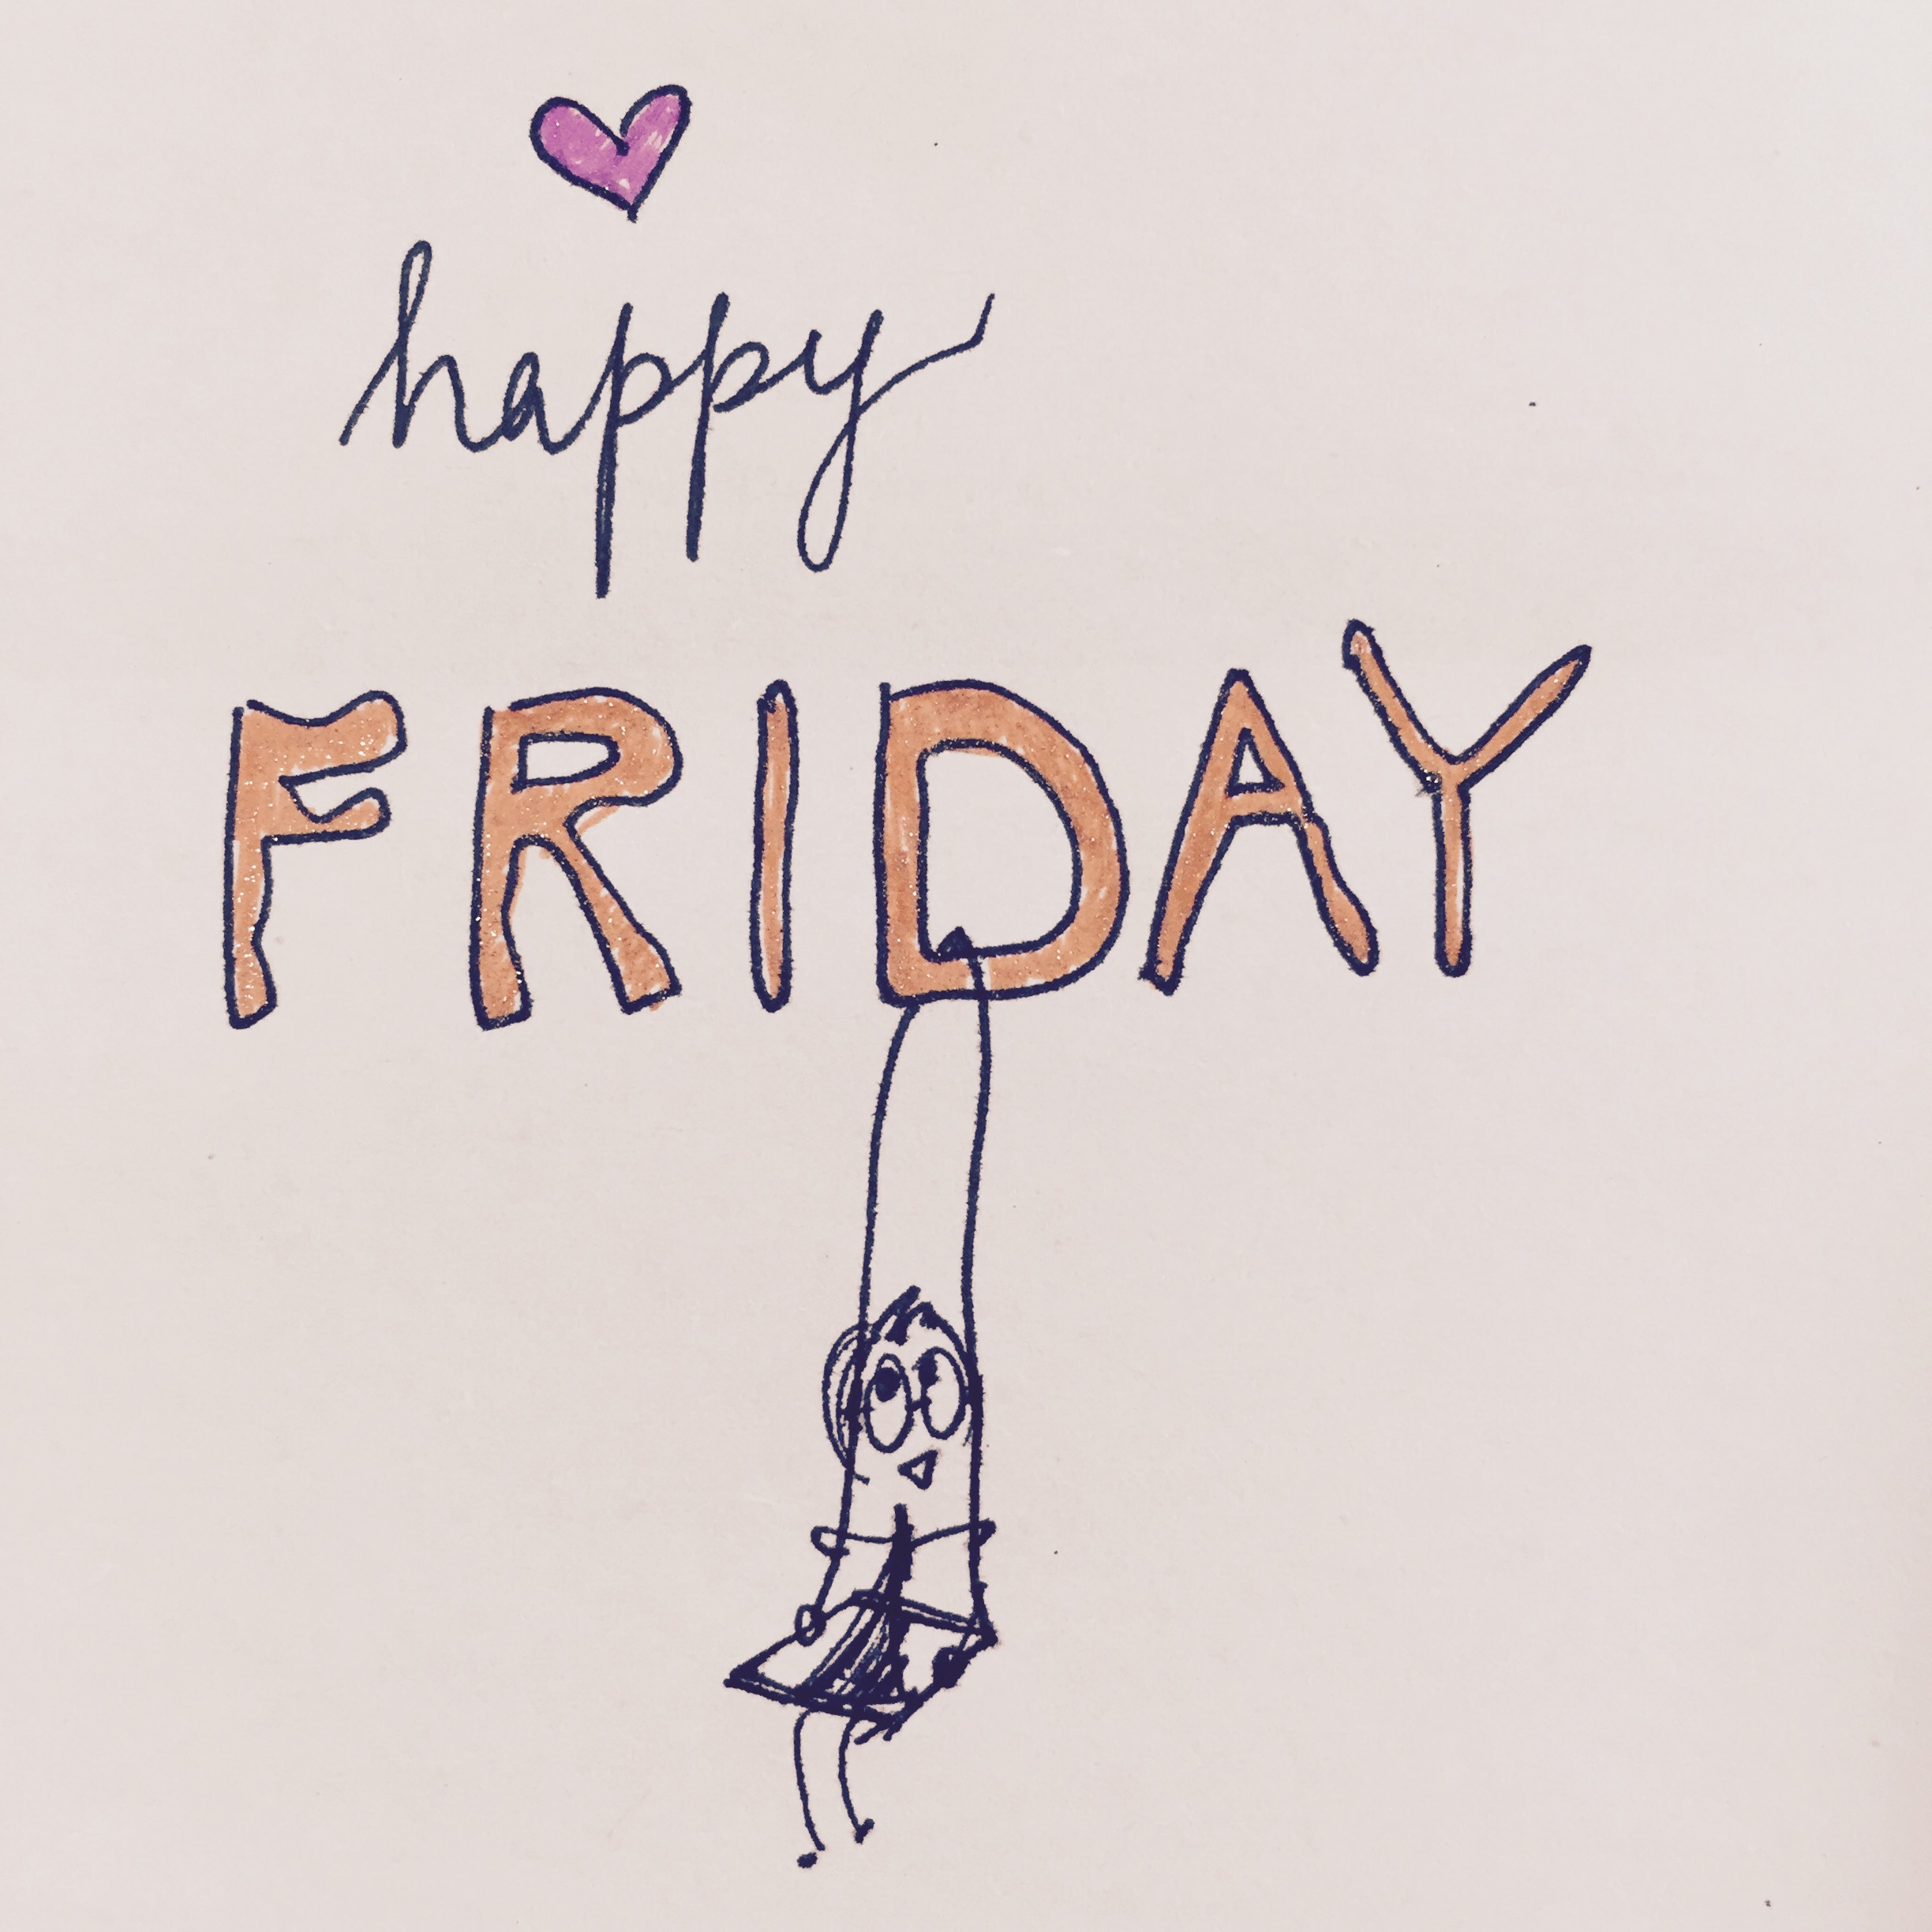 happy
FRIDAY